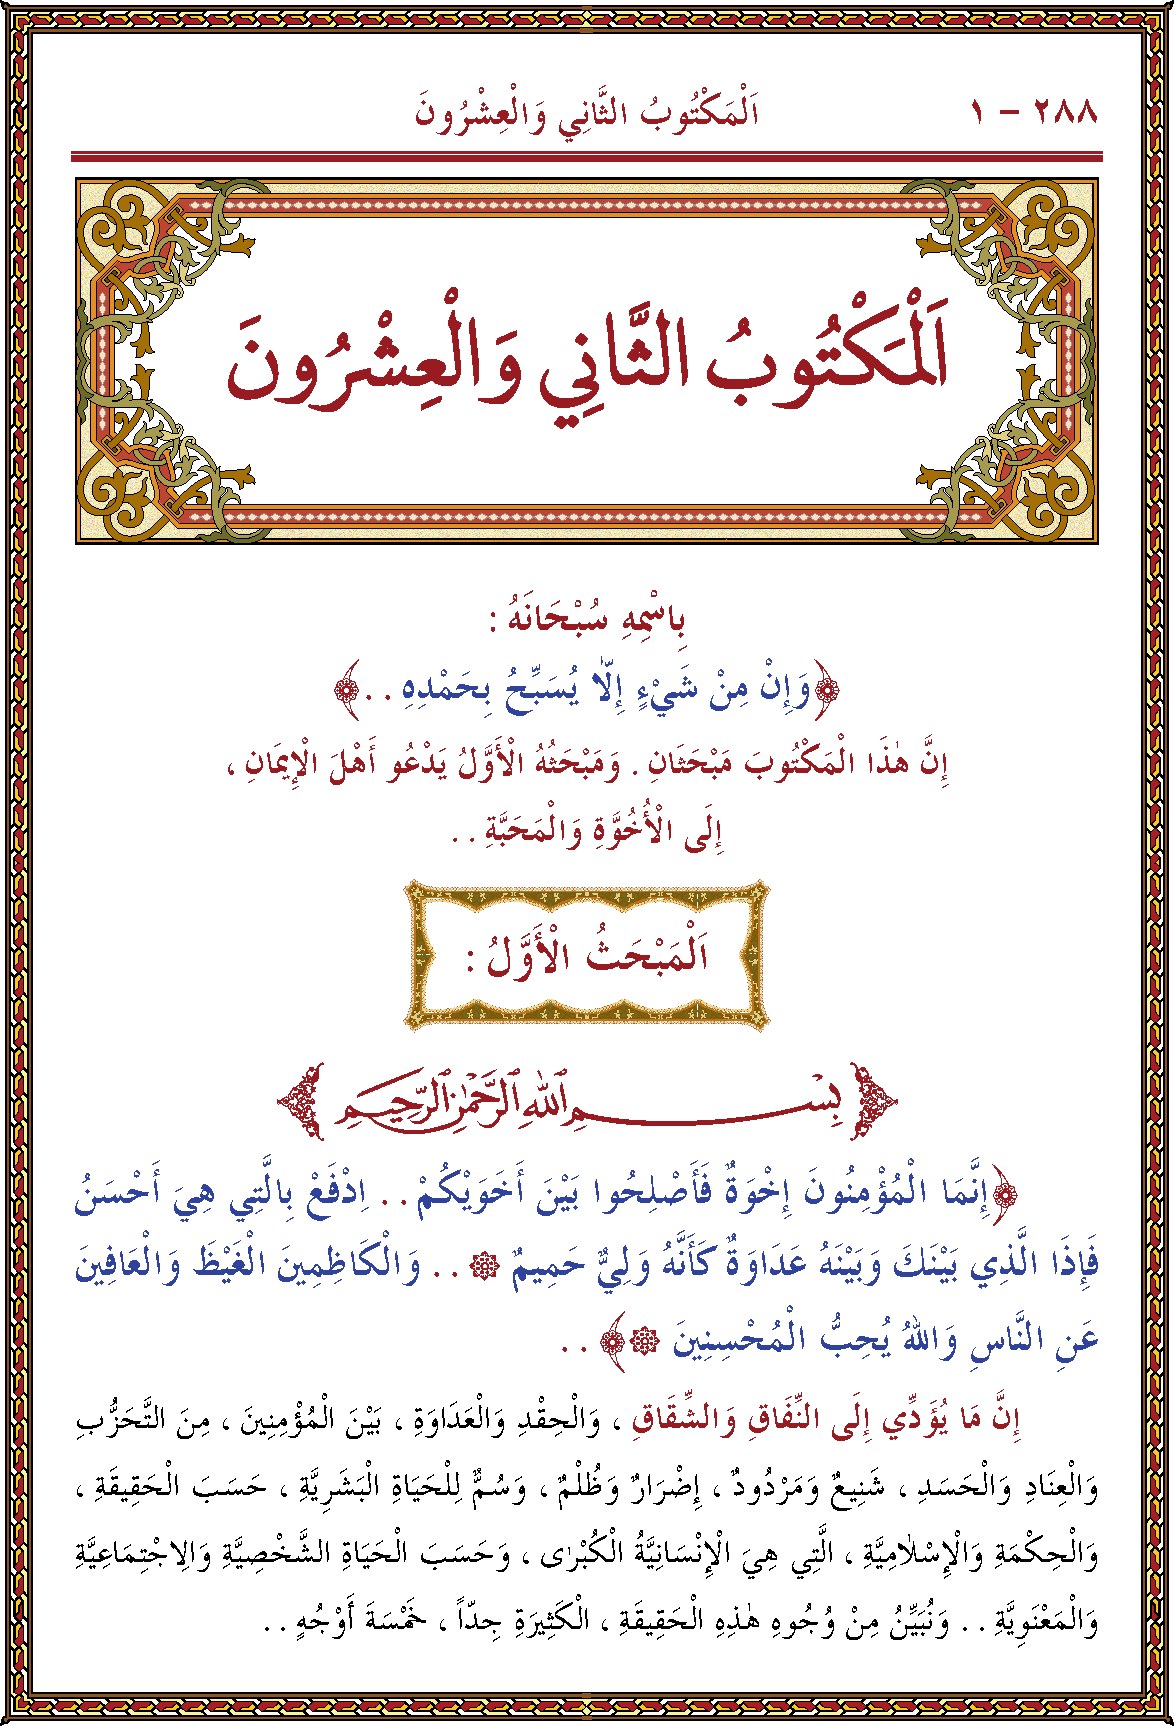 ٢٨٨ - ١
اَلْمَكْتُوبُ الثَّانِي وَالْعِشْرُونَ
اَلْمَكْتُوبُ الثَّانِي وَالْعِشْرُونَ
بِاسْمِهِ سُبْحَانَهُ :
﴿وَإِنْ مِنْ شَيْءٍ إِلَّا يُسَبِّحُ بِحَمْدِهِ . .﴾
إِنَّ هٰذَا الْمَكْتُوبَ مَبْحَثَانِ . وَمَبْحَثُهُ الْأَوَّلُ يَدْعُو أَهْلَ الْإِيمَانِ ،
إِلَى الْأُخُوَّةِ وَالْمَحَبَّةِ . .
اَلْمَبْحَثُ الْأَوَّلُ :
بِسْمِ اللهِ الرَّحْمٰنِ الرَّحِيمِ
﴿إِنَّمَا الْمُؤْمِنُونَ إِخْوَةٌ فَأَصْلِحُوا بَيْنَ أَخَوَيْكُمْ . . اِدْفَعْ بِالَّتِي هِيَ أَحْسَنُ
فَإِذَا الَّذِي بَيْنَكَ وَبَيْنَهُ عَدَاوَةٌ كَأَنَّهُ وَلِيٌّ حَمِيمٌ ۞ . . وَالْكَاظِمِينَ الْغَيْظَ وَالْعَافِينَ
عَنِ النَّاسِ وَاللهُ يُحِبُّ الْمُحْسِنِينَ ۞﴾ . .
إِنَّ مَا يُؤَدِّي إِلَى النِّفَاقِ وَالشِّقَاقِ ، وَالْحِقْدِ وَالْعَدَاوَةِ ، بَيْنَ الْمُؤْمِنِينَ ، مِنَ التَّحَزُّبِ
وَالْعِنَادِ وَالْحَسَدِ ، شَنِيعٌ وَمَرْدُودٌ ، إِضْرَارٌ وَظُلْمٌ ، وَسُمٌّ لِلْحَيَاةِ الْبَشَرِيَّةِ ، حَسَبَ الْحَقِيقَةِ ،
وَالْحِكْمَةِ وَالْإِسْلَامِيَّةِ ، الَّتِي هِيَ الْإِنْسَانِيَّةُ الْكُبْرٰى ، وَحَسَبَ الْحَيَاةِ الشَّخْصِيَّةِ وَالِاجْتِمَاعِيَّةِ
وَالْمَعْنَوِيَّةِ . . وَنُبَيِّنُ مِنْ وُجُوهِ هٰذِهِ الْحَقِيقَةِ ، الْكَثِيرَةِ جِدّاً ، خَمْسَةَ أَوْجُهٍ . .